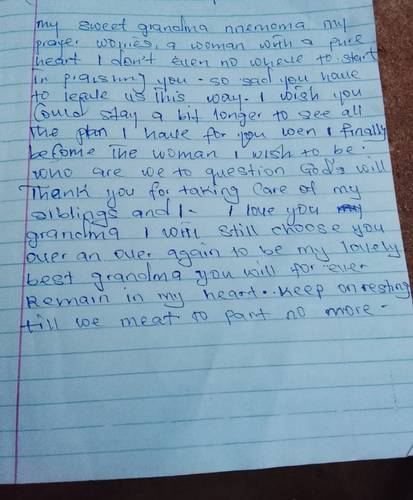 my sweet grandma nnemoma my
prayer worries, a woman with a pure
heart I don't even no where to start
in praising you - so sad you have
to leave us this way. I wish you
Could stay a bit longer to see all
the plan I have for you wen I finally
become the woman I wish to be.
who are we to question God's will
Thank you for taking Care of my
siblings and I. I love you
grandma I will still choose you
over an over again to be my lovely
best grandma you will for ever
Remain in my heart. Keep on resting
till we meat to part no more -